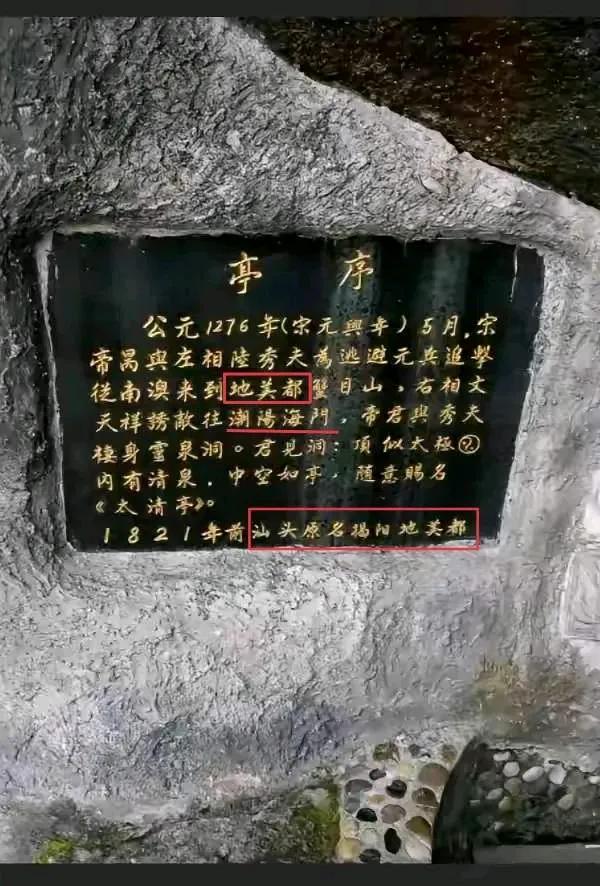 亭序
公元1276年(宋元興年)5月,宋
帝昺與左相陸秀夫為逃避元兵追擊
從南澳来到地美都蟹目山,右相文
天祥誘敵往潮陽海門,帝君與秀夫
棲身靈泉洞。君見洞:頂似太極
內有清泉,中空如亭,隨意賜名
《太清亭》。
1821年前汕头原名揭阳地美都